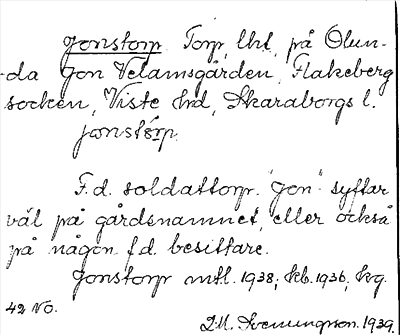 Jonstorp Torp, lht, på Olun-
da Jon Velamsgården, Flakeberg
socken, Viste hrd, Skaraborgs l.
jonstórp.
F.d. soldattorp. "Jon" syftar
väl på gårdsnamnet, eller också
på någon f.d. besittare.
Jonstorp mtl. 1938, kb. 1936, kg.
42 NO.
D.M. Svenungson. 1939